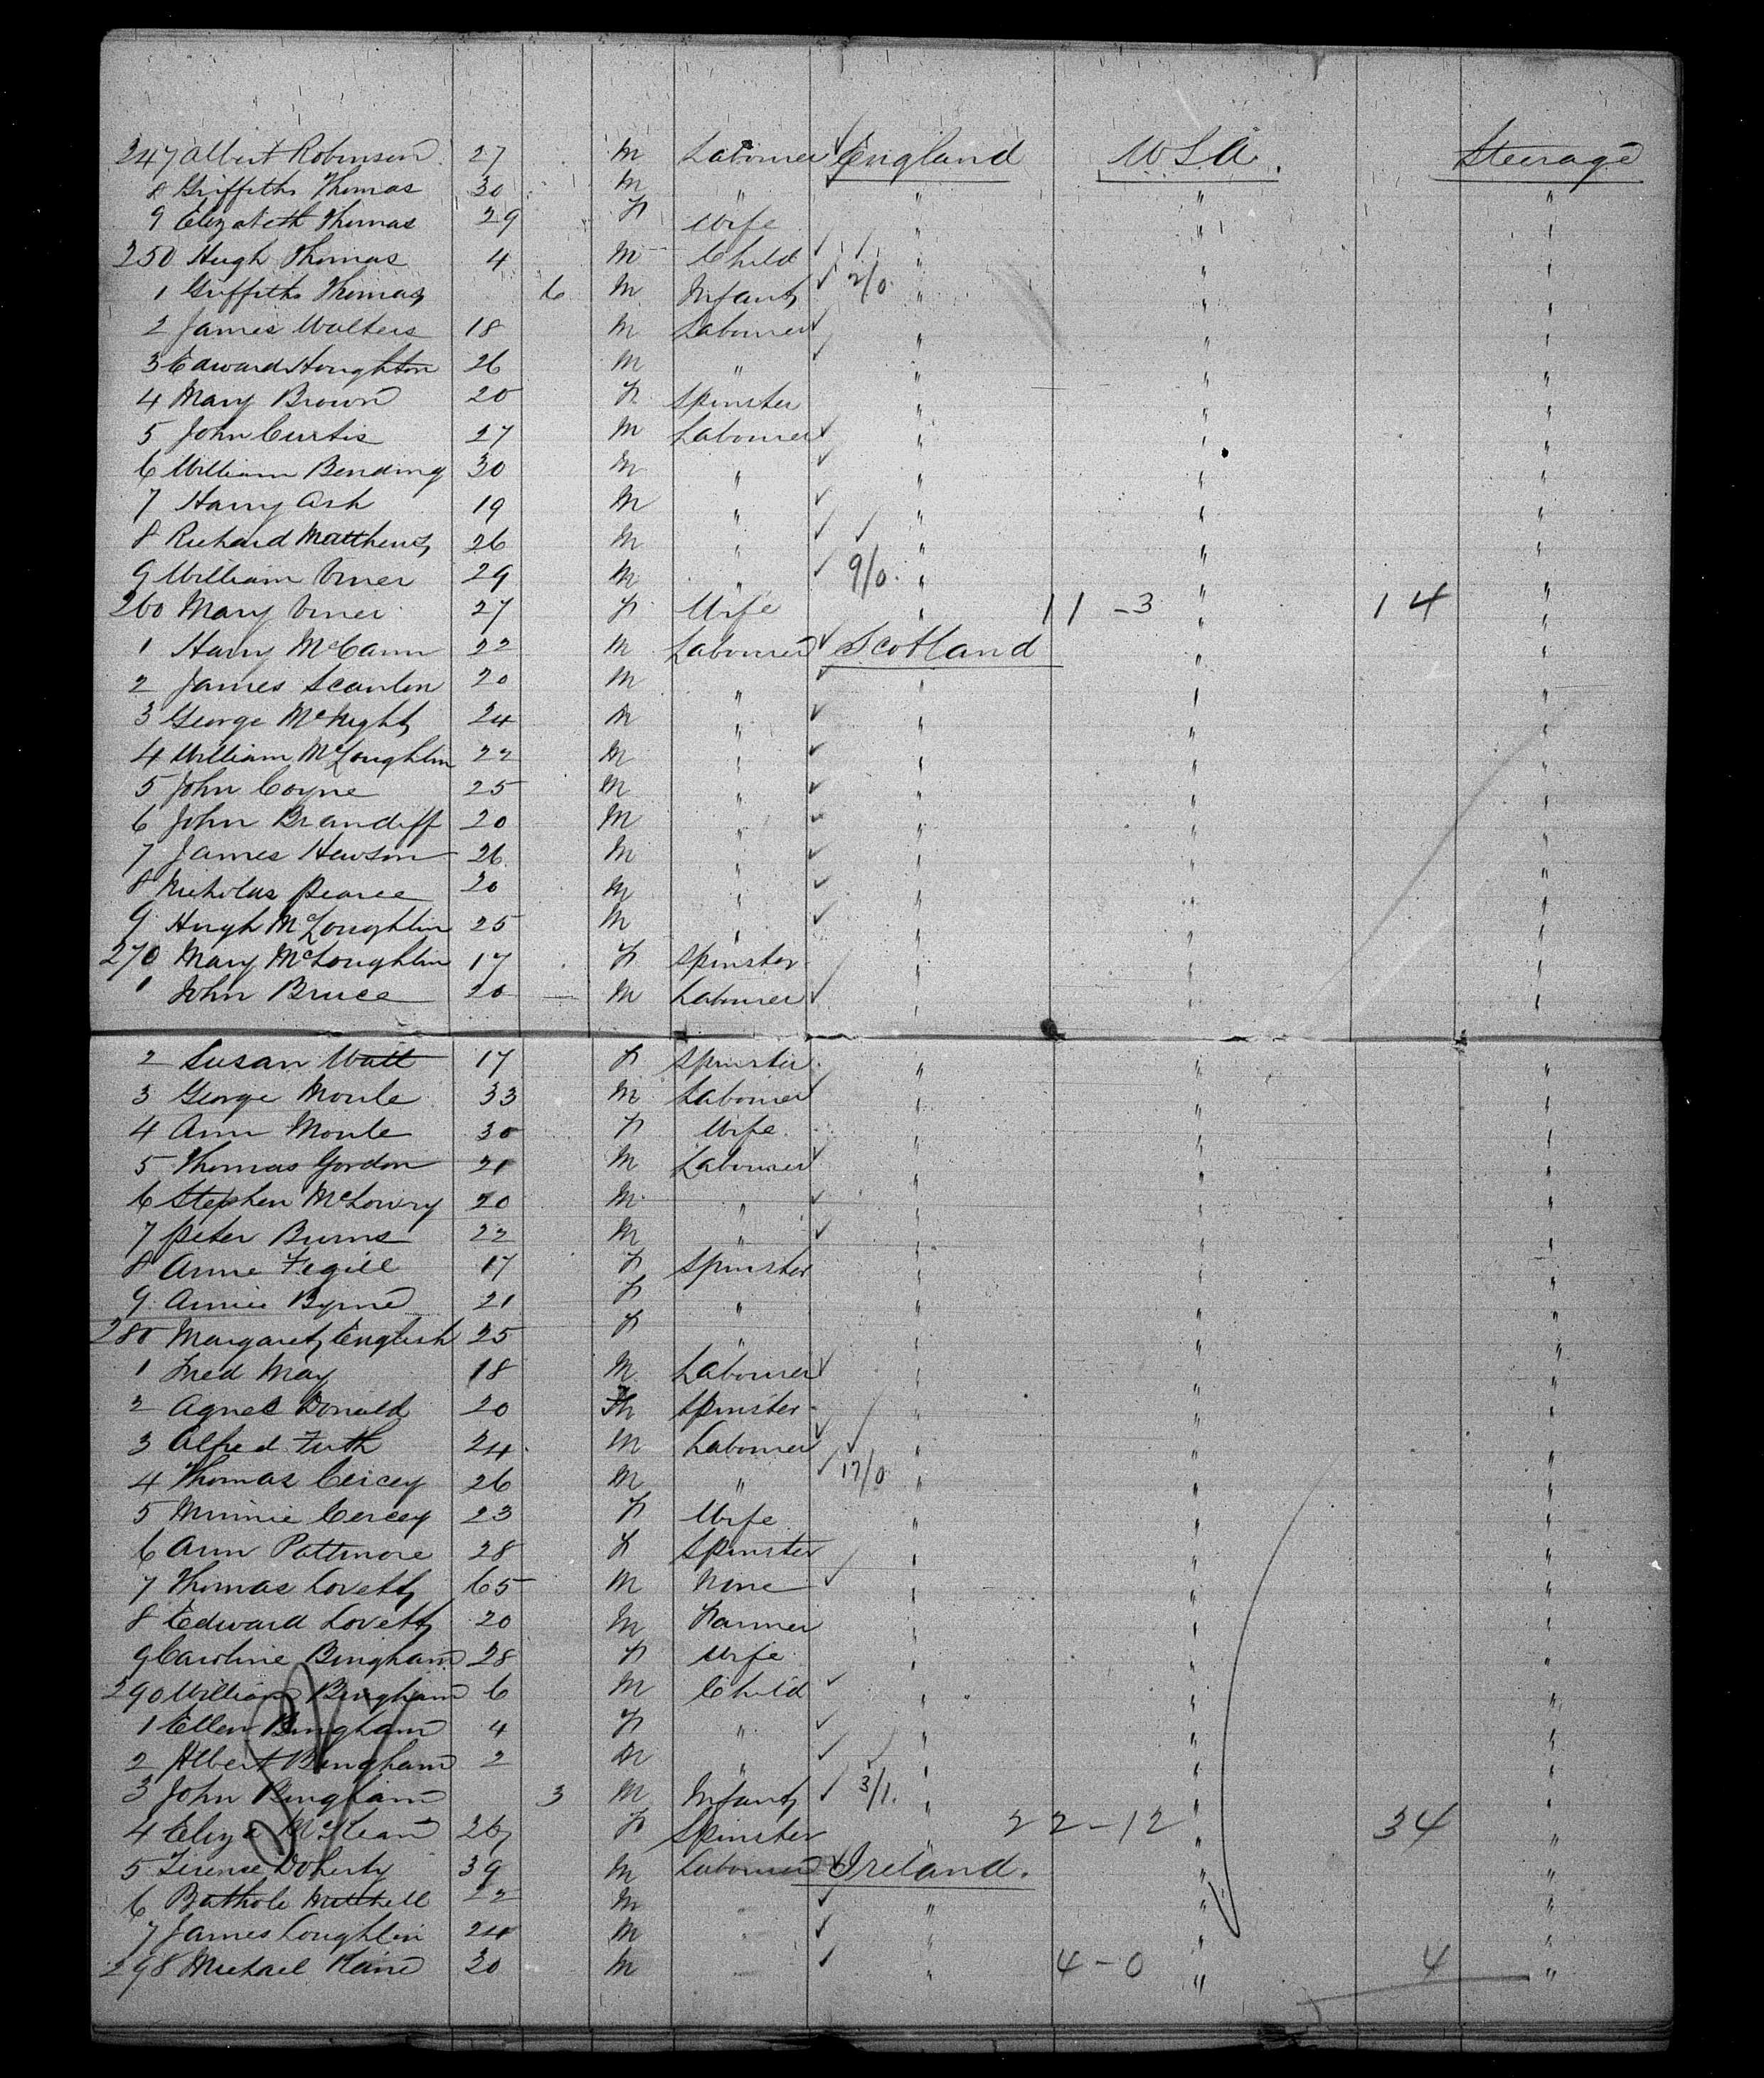 247 Albert Robinson 27 M Labourer ✓ England U S A. Steerage
8 Griffiths Thomas 30 M " ✓ " " "
9 Elizabeth Thomas 29 F Wife " " "
250 Hugh Thomas 4 M Child ✓ " " "
1 Griffiths Thomas 6 M Infant ✓ 2/0 " " "
2 James Walters 18 M Labourer ✓ " " "
3 Edward Houghton 26 M " ✓ " " "
4 Mary Brown 20 F Spinster " " "
5 John Curtis 27 M Labourer ✓ " " "
6 William Bending 30 M " ✓ " " "
7 Harry Ash 19 M " ✓ " " "
8 Richard Matthews 26 M " ✓ " " "
9 William Viner 29 M " ✓ 9/0. " " "
260 Mary Viner 27 F Wife " 11 - 3 " 14 "
1 Harry McCann 22 M Labourer ✓ Scotland " "
2 James Scanlon 20 M " ✓ " " "
3 George McNight 24 M " ✓ " " "
4 William McLoughlin 22 M " ✓ " " "
5 John Coyne 25 M " ✓ " " "
6 John Brandiff 20 M " ✓ " " "
7 James Hewson 26 M " ✓ " " "
8 Nicholas Pearce 20 M " ✓ " " "
9 Hugh McLoughlin 25 M " ✓ " " "
270 Mary McLoughlin 17 F Spinster " " "
1 John Bruce 20 M Labourer ✓ " " "
2 Susan Watt 17 F Spinster " " "
3 George Moule 33 M Labourer ✓ " " "
4 Ann Moule 30 F Wife " " "
5 Thomas Gordon 21 M Labourer ✓ " " "
6 Stephen McLowry 20 M " ✓ " " "
7 Peter Burns 22 M " ✓ " " "
8 Anne Fegill 17 F Spinster " " "
9 Annie Byrne 21 F " " " "
280 Margaret English 25 F " " " "
1 Fred May 18 M Labourer ✓ " " "
2 Agnes Donald 20 F Spinster " " "
3 Alfred Futh 24 M Labourer ✓ " " "
4 Thomas Cercey 26 M " ✓ 17/0 " " "
5 Minnie Cercey 23 F Wife " " "
6 Ann Pattmore 28 F Spinster " " "
7 Thomas Lovett 65 M None ✓ " " "
8 Edward Lovett 20 M Farmer " " "
9 Caroline Bingham 28 F Wife " " "
290 William Bingham 6 M Child ✓ " " "
1 Ellen Bingham 4 F " ✓ " " "
2 Albert Bingham 2 M " ✓ " " "
3 John Bingham 3 M Infant ✓ 3/1. " " "
4 Eliza McKean F Spinster " 22 - 12 " 34 "
5 Terence Doherty 39 M Labourer ✓ Ireland. " "
6 Bathole Mitchell 22 M " ✓ " " "
7 James Loughlin 24 M " ✓ " " "
298 Michael Kane 30 M " ✓ " 4 - 0 " 4 "